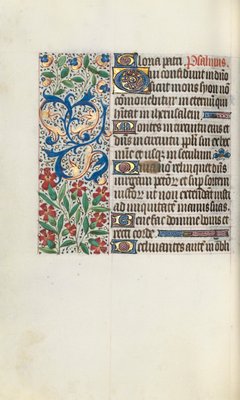 Gloria patri. Psalmus.
Qui confidunt in dño
sicut mons syon non
cõmovebitur in eternũ qui
hĩtat in iherusalem
Montes in circuitu eius et
dñs in circuitu ppli sui ex hoc
nũc et usqȝ in seculum
Quia nõ relinquet dñs
virgam pctõꝝ et sup sortem
iustoꝝ ut non extendãt iusti
ad iniquitatẽ manus suas.
Benefac domine bonis et
recti corde
Declinantes autẽ in obli